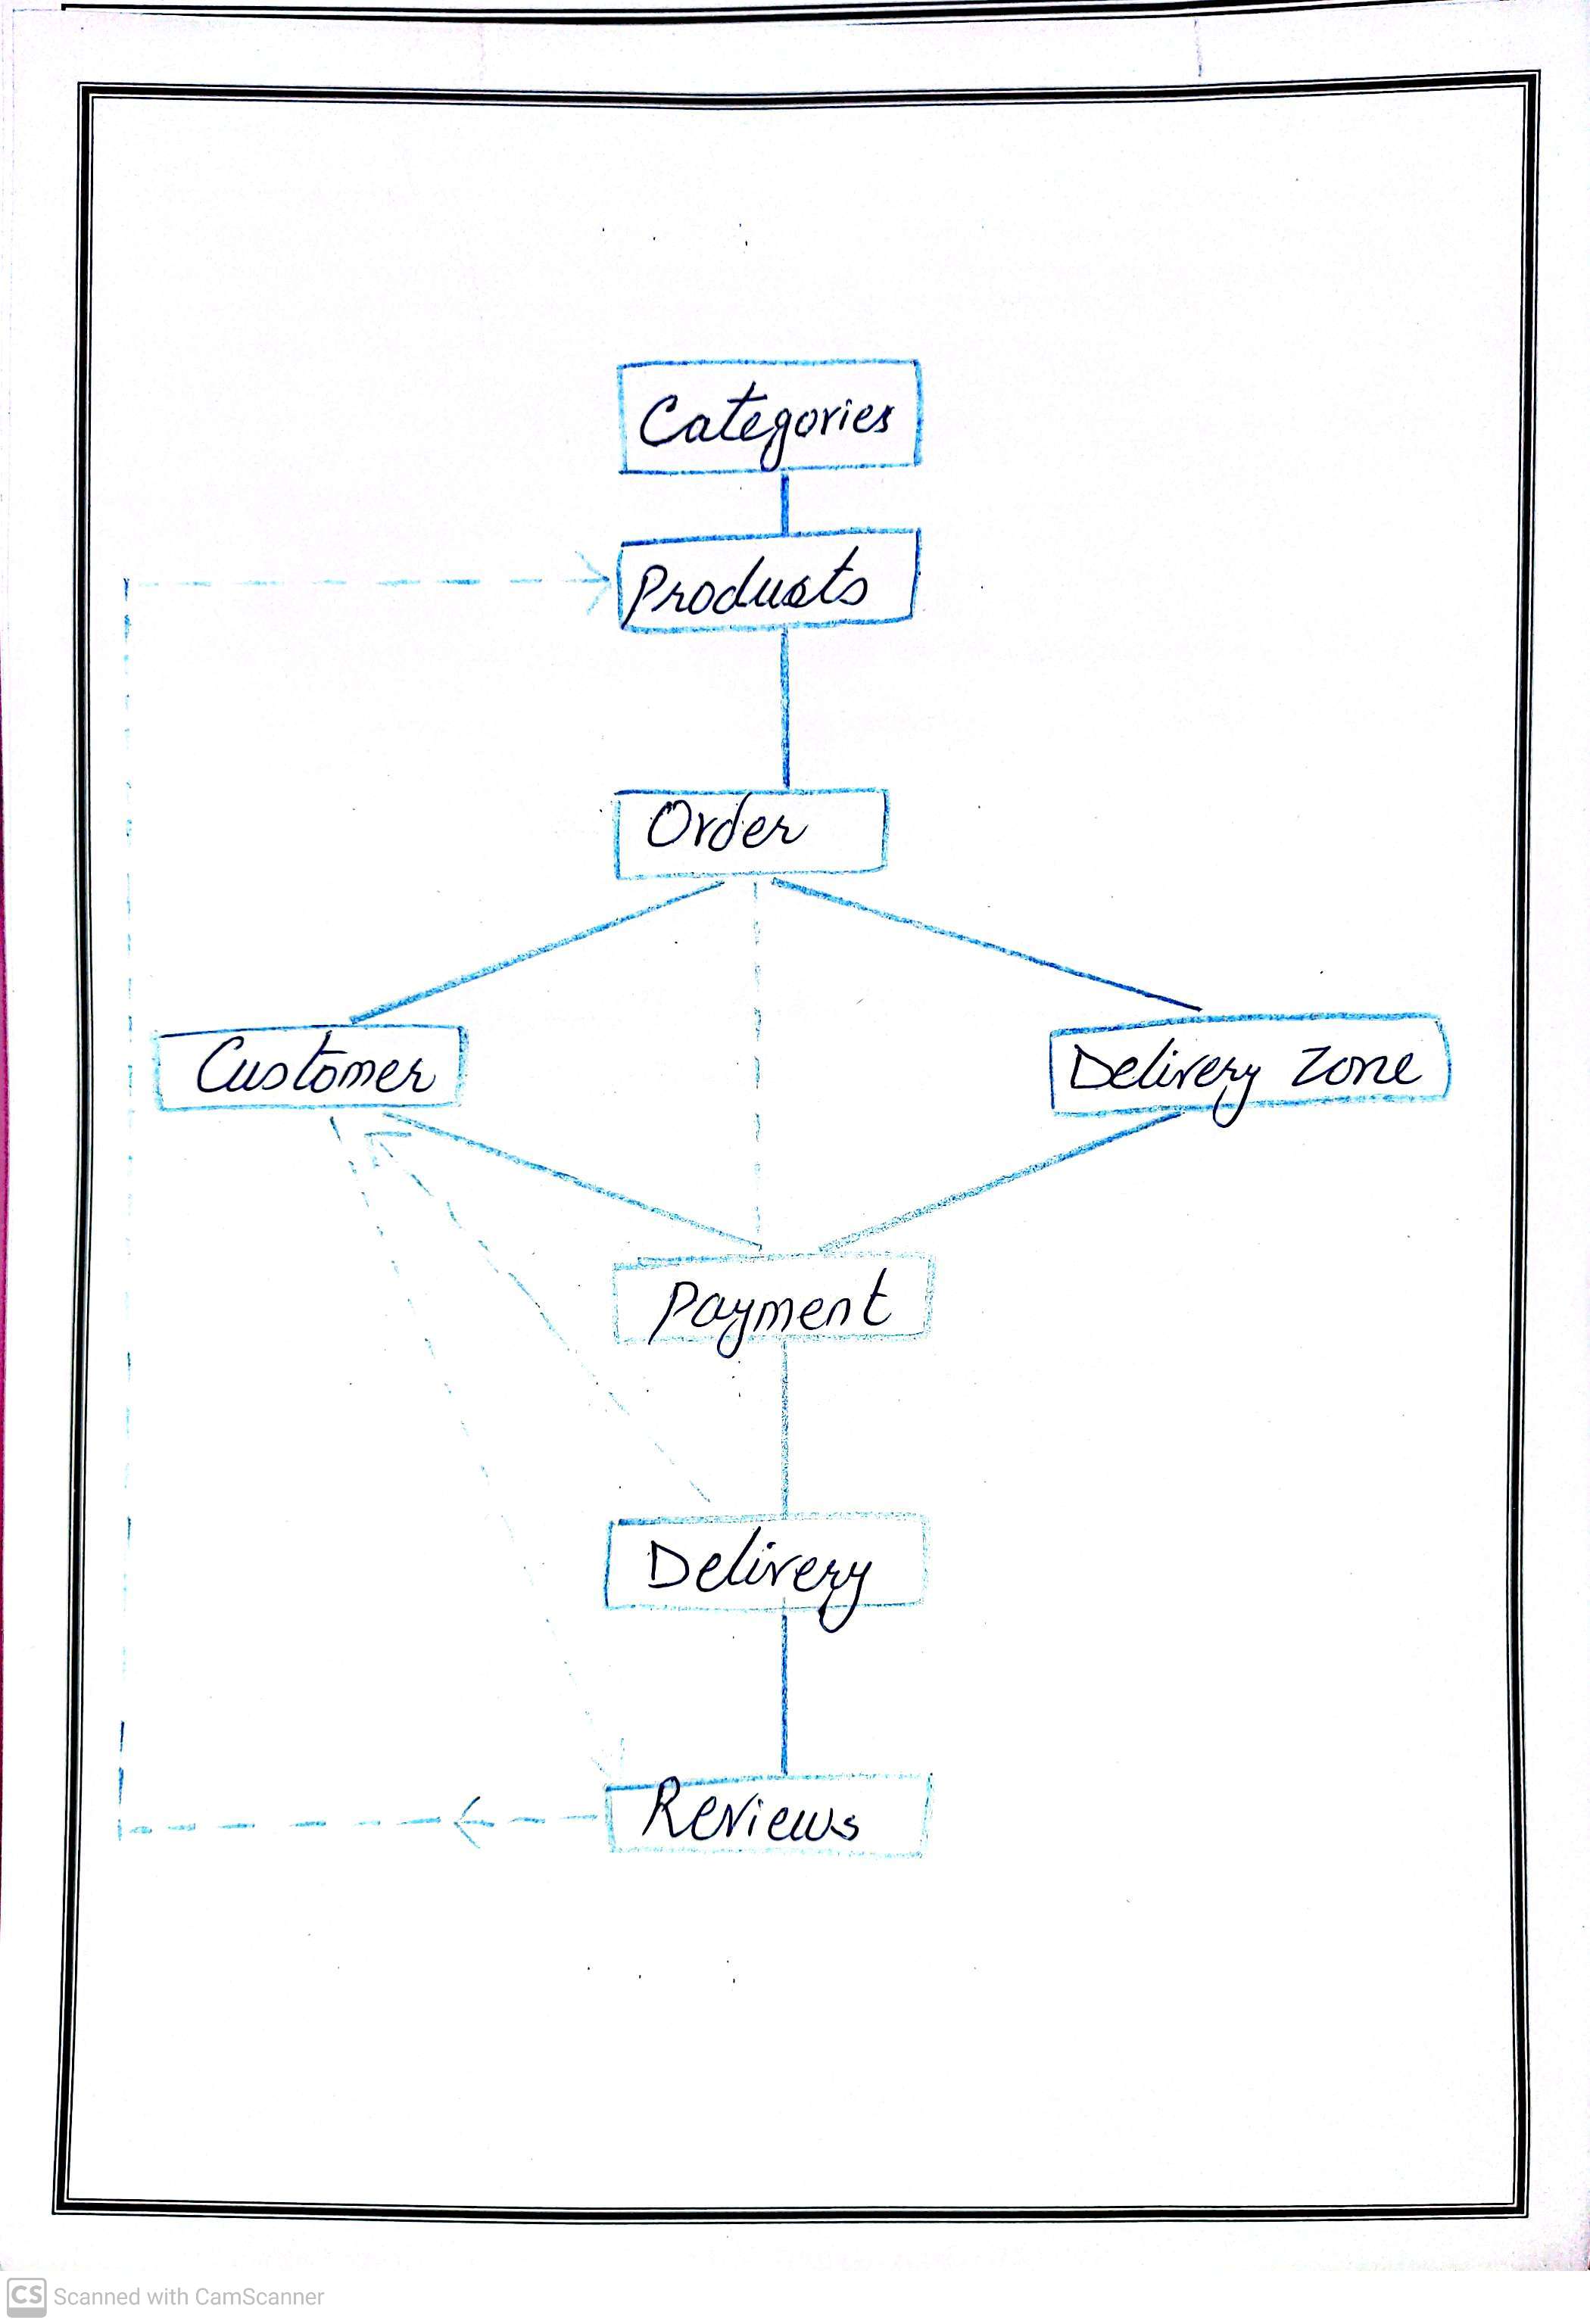 Categories
Products
Order
Customer
Delivery zone
Payment
Delivery
Reviews
CS Scanned with CamScanner